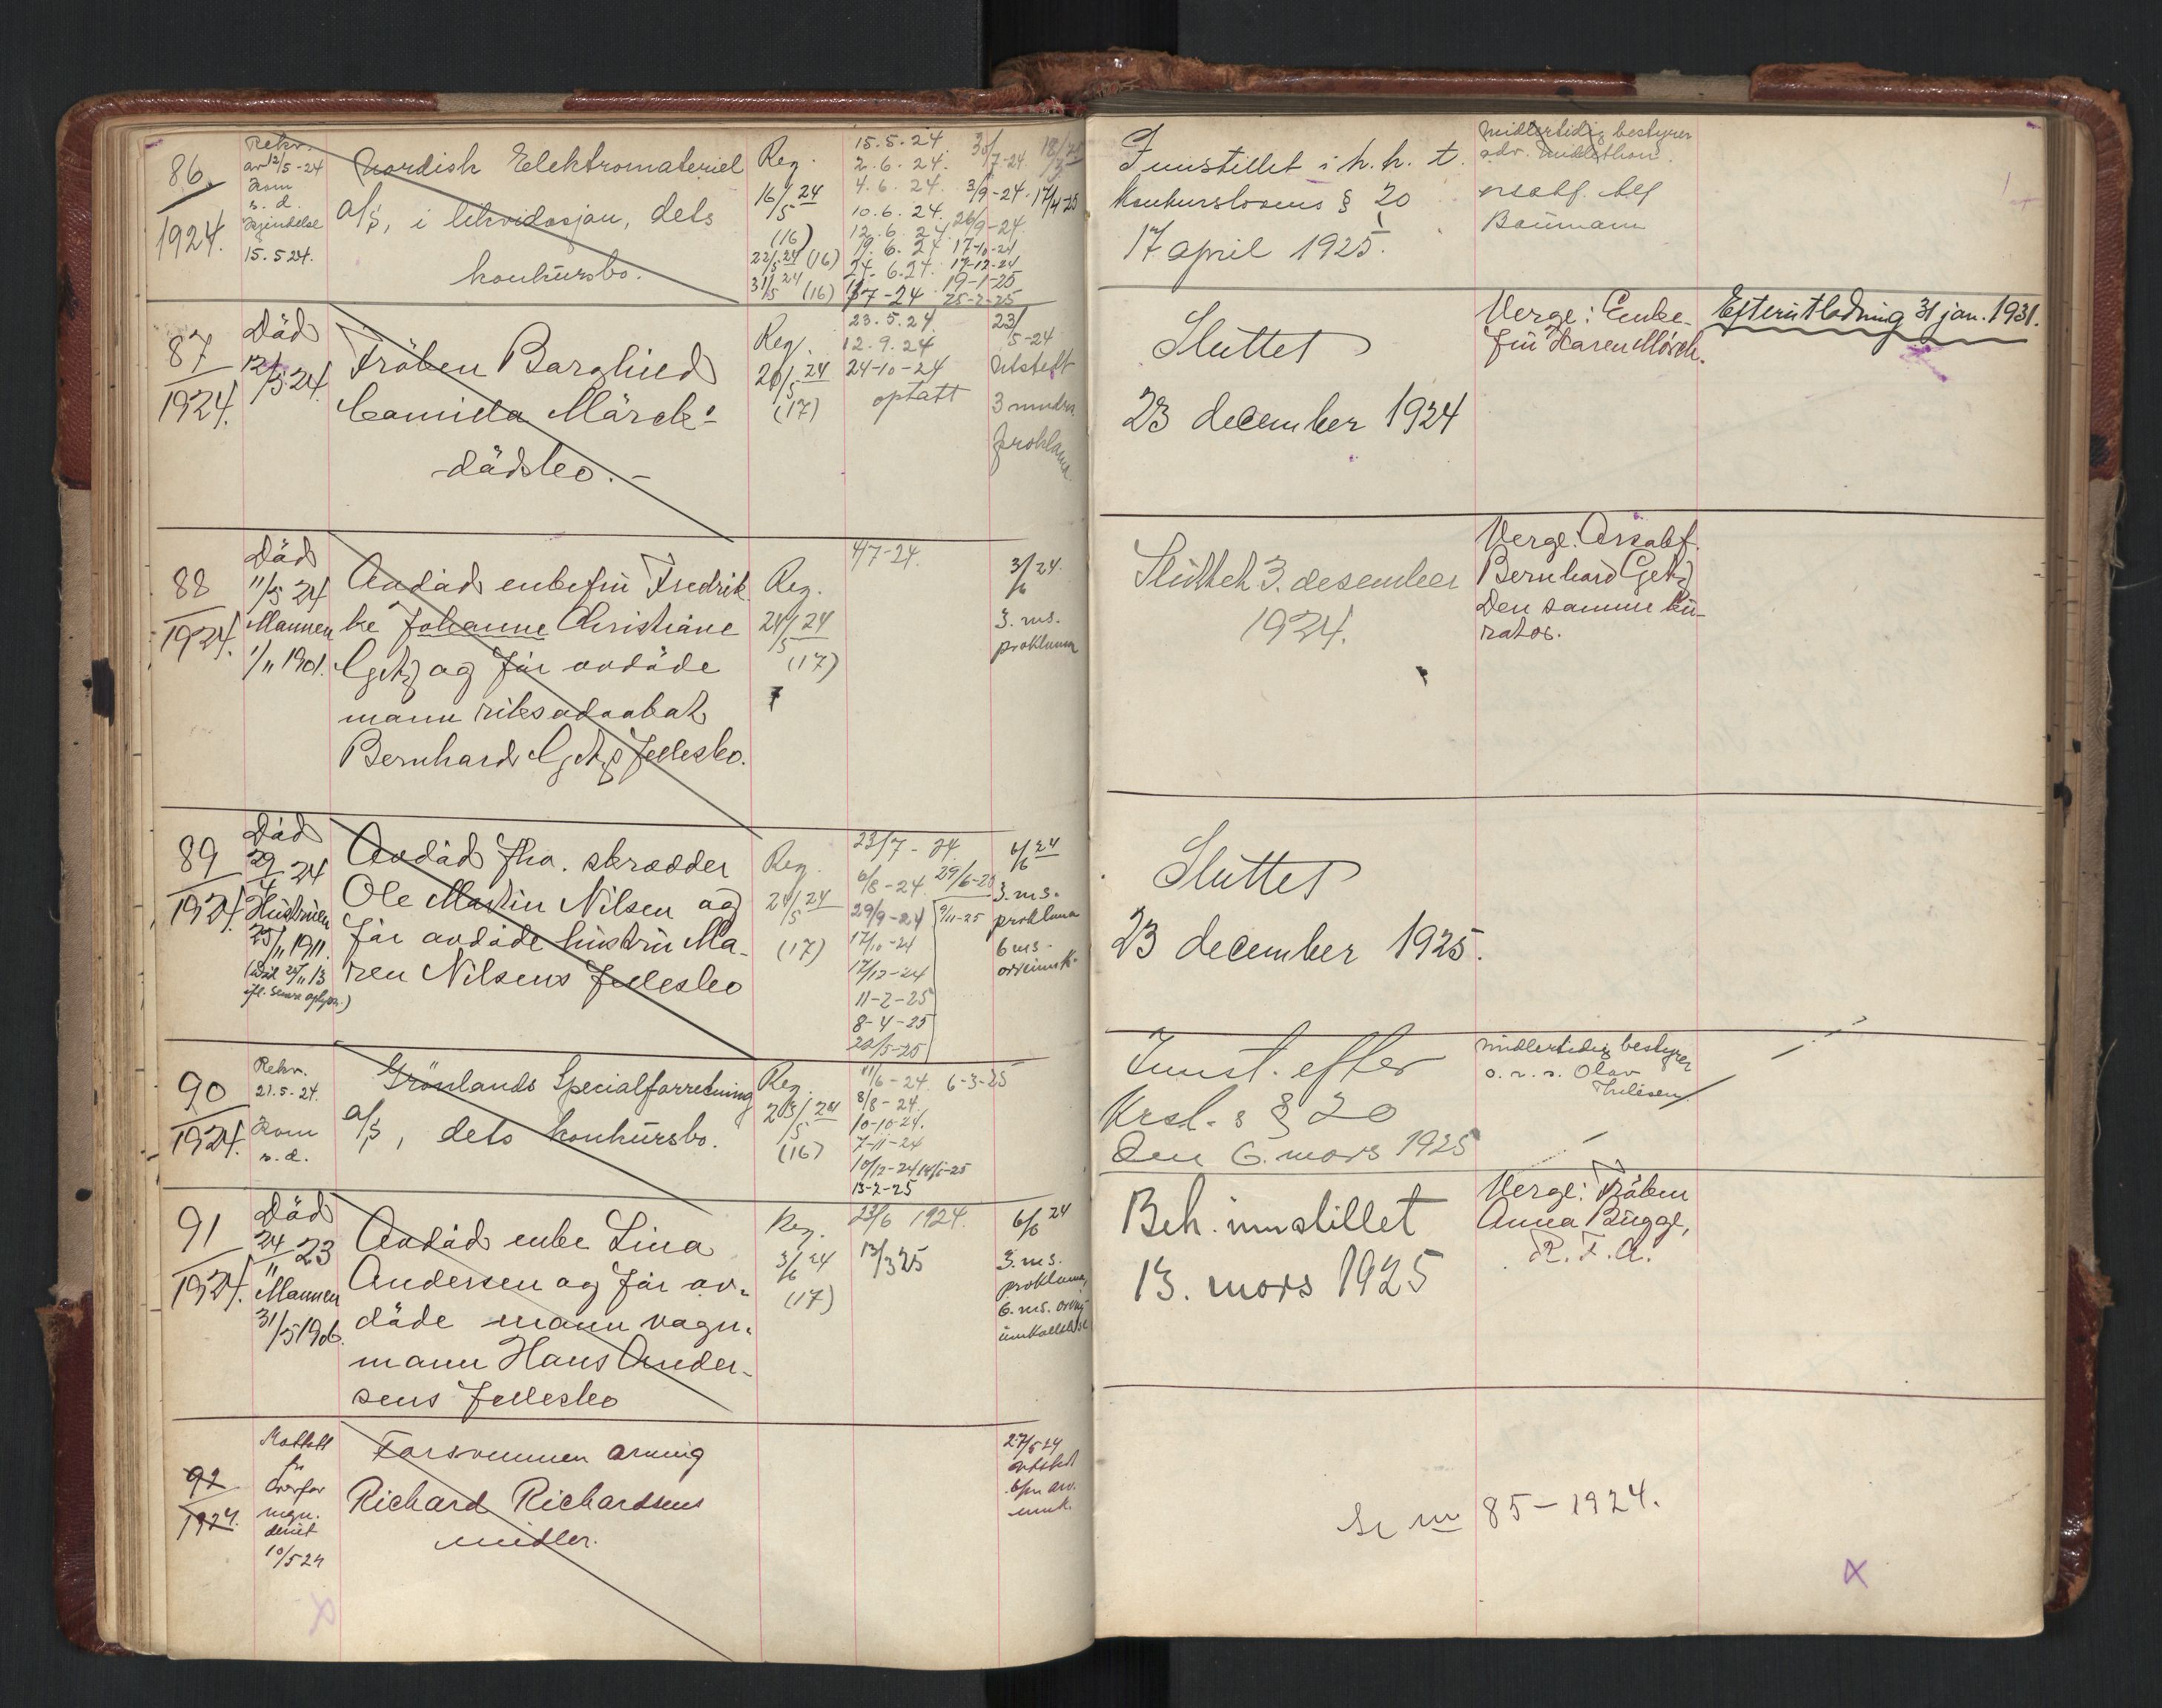 86
1924.
Rekv.
av 12/5-24
Kom
s. d.
Kjendelse
15.5 24.
Nordisk Elektromateriel
a/s, i likvidasjon, dets
konkursbo.
Reg.
16/5 24
(16)
22/5 24 (16)
31/5 24 (16)
15.5.24.
2.6.24.
4.6.24.
10.6.24.
12.6.24
19.6.24
24.6.24.
3/9-24.
17/4-25
26/9-24.
17-10-24
17-12-24
19-1-25
25-2-25
Innstillet i h. h. t.
konkurslovens § 20
17 april 1925.
Midlertidig bestyrer
adv.
Baumann
87
1924.
Död
12/5 24.
Fröken Borghild
Camilla Mörch's
dödsbo.-
Reg.
20/5 24
(17)
23.5.24.
12.9.24
24-10-24
optatt
23/5-24
Utstedt
3 mndrs
proklama
Sluttet
23 december 1924
Verge: Enke-
fru Karen Mörch.
Efterutlodning 31 jan. 1931.
88
1924.
Död
11/5 24
Mannen
1/11 1901.
Avdöd enkefru Fredrik-
ke Johanne Christiane
Getz og för avdöde
mann riksadvokat
Bernhard Getz's fellesbo.
Reg.
24/5 24
(17)
4/7-24.
3/6 24.
3. ms.
proklama
Sluttet 3. desember
1924.
Verge: O.r.sakf.
Bernhard Getz
Den samme ku-
rator.
89
1924.
Död
29/4 24
Hustruen
25/11 1911.
Avdöd fhv. skrædder
Ole Martin Nilsen og
för avdöde hustru Ma-
ren Nilsens fellesbo
Reg.
24/5 24
(17)
23/7-24.
6/8-24.
29/9-24
17/10-24
17/12-24
11-2-25
8-4-25
20/5-25
29/6-25
9/11-25
6/6 24
3. ms.
proklama
6 ms-
Sluttet
23 december 1925.
90
1924.
Rekv.
21.5-24.
Kom
s. d.
Grönlands Specialforretning
a/s, dets konkursbo.
Reg.
(16)
11/6-24. 6-3-25
8/8-24.
10-10-24.
7-11-24
10/12-24
13-2-25
Innst. efter
Krsl.s § 20
den 6. mars 1925
Midlertidig bestyrer
o. r. s. Olav
91
1924.
Död
24/11 23
Mannen
31/5 1906.
Avdöd enke Lina
Andersen og för av-
döde mann vogn-
mann Hans Ander-
sens fellesbo
Reg.
3/6 24
(17)
23/6 1924.
13/3 25
6/6 24
3. ms.
proklama,
6. ms. arving
innkallelse
Beh. innstillet
13. mars 1925
Verge: Fröken
Anna Bugge,
R. F. A.
92
1924.
Mottatt
fr
10/5 24
Forsvunnen arving
Richard Richardsens
midler.
27/5 24
utstedt
Se nr 85-1924.